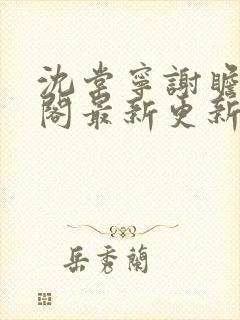 沈棠寧謝瞻
閣最新更新
岳秀蘭